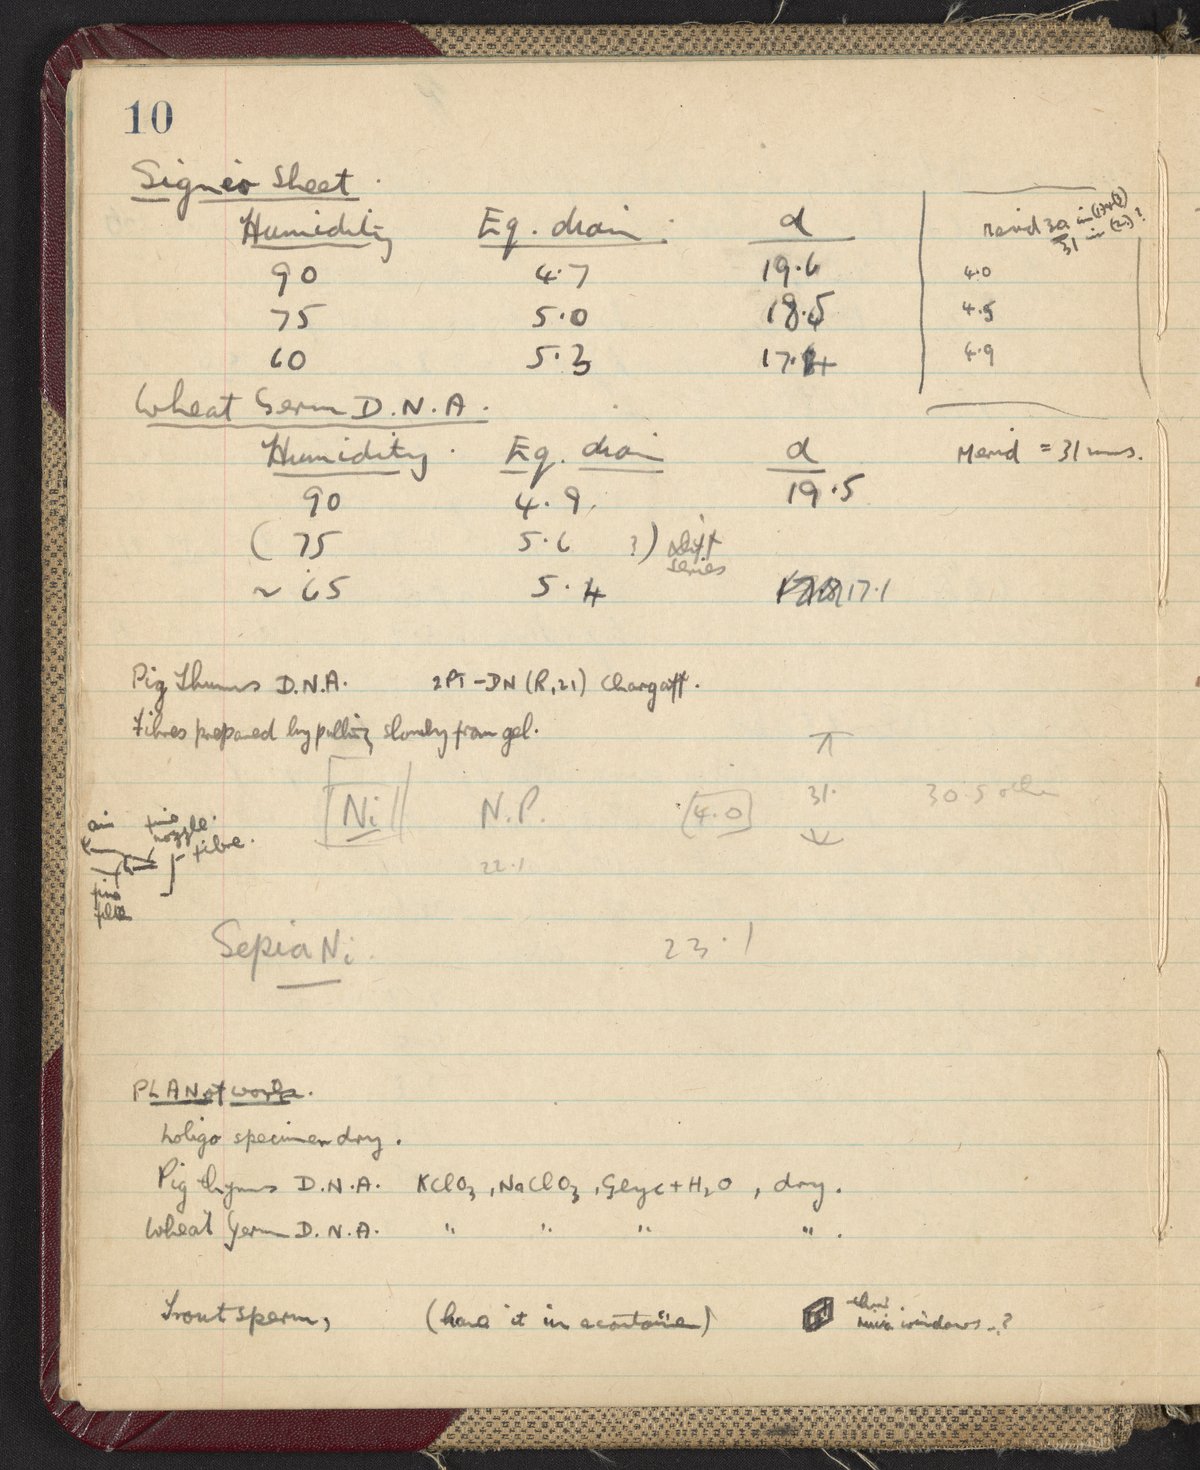 10
Signer Sheet.
Humidity Eq. diam. d Merid 30 in (1)+(3) ?
31 in (2)
90 4.7 19.6 4.0
75 5.0 18.5 4.5
60 5.3 17.4 4.9
Wheat Germ D.N.A.
Humidity. Eq. diam d Merid = 31 mms.
90 4.9. 19.5
( 75 5.6 ?) diff
series
~ 65 5.4 17.1
Pig Thymus D.N.A. 2PT-DN (R,21) Chargaff.
Fibres prepared by pulling slowly from gel.
Ni N.P. (4.0) 31. 30.5 other
22.1
air fine
nozzle.
fibre.
fine
Sepia Ni. 23.1
PLAN of work.
Loligo specimen dry.
Pig thymus D.N.A. KClO3, NaClO3, Glyc + H2O, dry.
Wheat Germ D.N.A. " " " " .
Trout sperm, (have it in a container) thin
mica windows..?